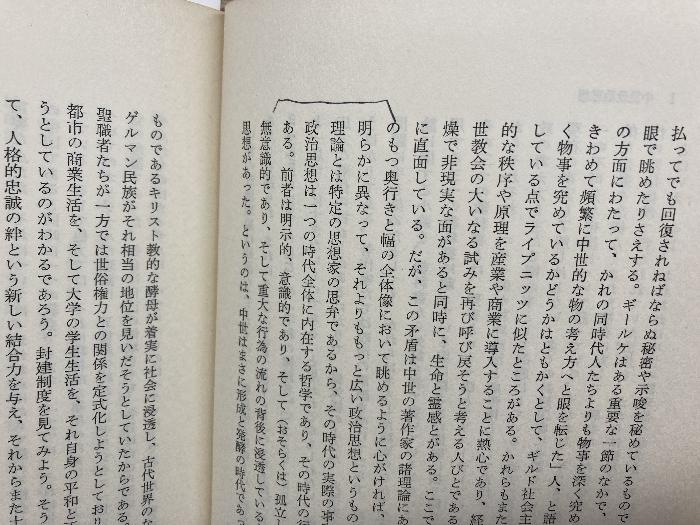 払ってでも回復されねばならぬ秘密や示唆を秘めているもので
眼で眺めたりさえする。ギールケはある重要な一節のなかで、
の方面にわたって、かれの同時代人たちよりも物事を深く究め
きわめて頻繁に中世的な物の考え方へと眼を転じた」人、と語
く物事を究めているかどうかはともかくとして、ギルド社会主
している点でライプニッツに似たところがある。かれらもまた
的な秩序や原理を産業や商業に導入することに熱心であり、経
世教会の大いなる試みを再び呼び戻そうと考える人びとである
燥で非現実な面があると同時に、生命と霊感とがある。ここで
に直面している。だが、この矛盾は中世の著作家の諸理論にあ
のもつ奥行きと幅の全体像において眺めるように心がければ、
明らかに異なって、それよりももっと広い政治思想というもの
理論とは特定の思想家の思弁であるから、その時代の実際の事
政治思想は一つの時代全体に内在する哲学であり、その時代の行
ある。前者は明示的、意識的であり、そして(おそらくは)孤立し
無意識的であり、そして重大な行為の流れの背後に浸透している
思想があった。というのは、中世はまさに形成と発酵の時代であっ
ものであるキリスト教的な酵母が着実に社会に浸透し、古代世界のな
ゲルマン民族がそれ相当の地位を見いだそうとしていたからである。
聖職者たちが一方では世俗権力との関係を定式化しようとしており
都市の商業生活を、そして大学の学生生活を、それ自身の平和と正
うとしているのがわかるであろう。封建制度を見てみよう。そう
て、人格的忠誠の絆という新しい結合力を与え、それからまた土